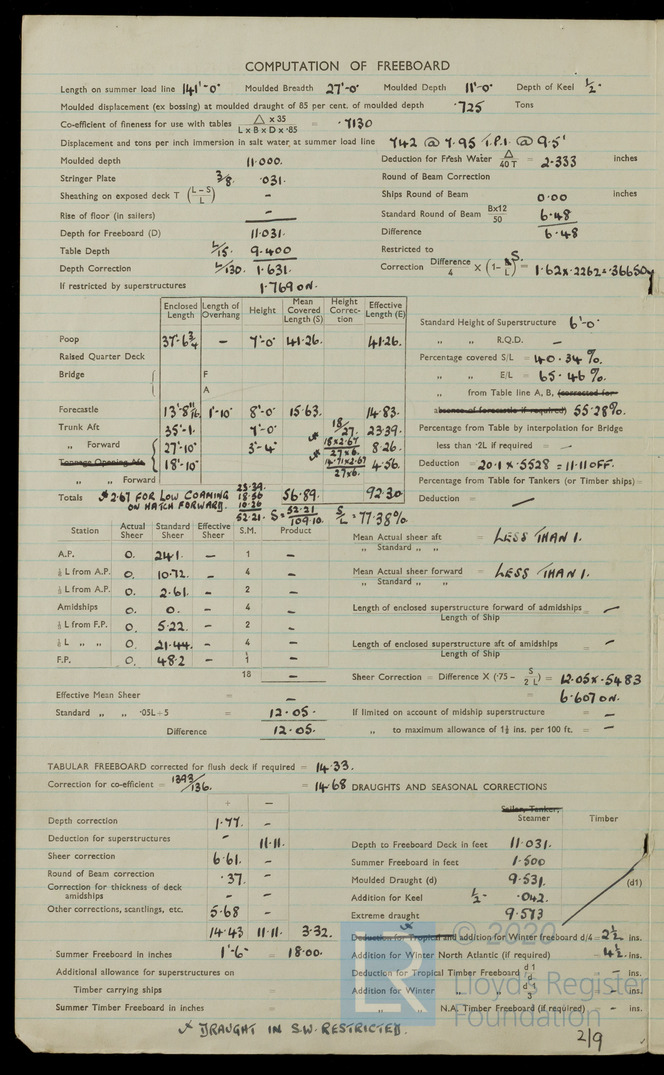 COMPUTATION OF FREEBOARD
Length on summer load line 141'-0" Moulded Breadth 27'-0" Moulded Depth 11'-0" Depth of Keel ½"
Moulded displacement (ex bossing) at moulded draught of 85 per cent. of moulded depth ·725 Tons
Co-efficient of fineness for use with tables △ x 35 / L x B x D x ·85 = ·7130
Displacement and tons per inch immersion in salt water at summer load line 742 @ 7.95 T.P.I. @ 9.5'
Moulded depth 11.000. Deduction for Fresh Water △ / 40 T = 2.333 inches
Stringer Plate 3/8. ·031. Round of Beam Correction
Sheathing on exposed deck T (L–S / L) – Ships Round of Beam 0.00 inches
Rise of floor (in sailers) – Standard Round of Beam Bx12 / 50 6.48
Depth for Freeboard (D) 11.031. Difference 6.48
Table Depth L/15. 9.400 Restricted to
Depth Correction L/130. 1.631. Correction Difference / 4 X (1– S / L) = 1.62x.2262=.36650N
If restricted by superstructures 1.769 ON.
Enclosed Length Length of Overhang Height Mean Covered Length (S) Height Correction Effective Length (E)
Standard Height of Superstructure 6'-0"
Poop 37'-6¾ – 7'-0" 41.26. 41.26. „ „ R.Q.D. –
Raised Quarter Deck Percentage covered S/L = 40.34%.
Bridge F „ E/L = 65.46%.
A „ from Table line A, B, (corrected for
Forecastle 13'-8 1'-10" 8'-0" 15.63. 14.83. absence of forecastle if required) 55.28%.
Trunk Aft 35'-1. 7'-0" 18/27. 23.39. Percentage from Table by interpolation for Bridge
„ Forward 27'-10" 3'-4" 18x2.67 / 27x6. 8.26. less than ·2L if required = –
Tonnage Opening Aft 18'-10" 14.71x2.67 / 27x6. 4.56. Deduction = 20.1 x .5528 = 11.11 OFF.
„ „ Forward Percentage from Table for Tankers (or Timber ships) =
Totals * 2.67 FOR LOW COAMING ON HATCH FORWARD. 23.39. 18.56 10.26 52.21. 56.89. 92.30 Deduction =
S = 52.21 / 109.10. S/L = 77.38%
Station Actual Sheer Standard Sheer Effective Sheer S.M. Product
Mean Actual sheer aft / „ Standard „ „ = LESS THAN 1.
A.P. 0. 24.1. – 1 –
⅙ L from A.P. 0. 10.72. – 4 – Mean Actual sheer forward / „ Standard „ „ = LESS THAN 1.
⅓ L from A.P. 0. 2.61. – 2 –
Amidships 0. 0. – 4 – Length of enclosed superstructure forward of admidships / Length of Ship = –
⅓ L from F.P. 0. 5.22. – 2 –
⅙ L „ „ 0. 21.44. – 4 – Length of enclosed superstructure aft of amidships / Length of Ship = –
F.P. 0. 48.2 – 1 –
18 – Sheer Correction = Difference X (·75 – S / 2 L) = 12.05x.5483
Effective Mean Sheer = – = 6.607 ON.
Standard „ „ ·05L+5 = 12.05. If limited on account of midship superstructure = –
Difference 12.05. „ to maximum allowance of 1½ ins. per 100 ft. = –
TABULAR FREEBOARD corrected for flush deck if required = 14.33.
Correction for co-efficient = 1393/136. = 14.68 DRAUGHTS AND SEASONAL CORRECTIONS
+ – Sailer, Tanker, Steamer Timber
Depth correction 1.77. –
Deduction for superstructures – 11.11. Depth to Freeboard Deck in feet 11.031.
Sheer correction 6.61. – Summer Freeboard in feet 1.500
Round of Beam correction .37. – Moulded Draught (d) 9.531. (d1)
Correction for thickness of deck amidships – – Addition for Keel ½" .042.
Other corrections, scantlings, etc. 5.68 – Extreme draught 9.573
14.43 11.11. 3.32. Deduction for Tropical and addition for Winter freeboard d/4 = 2½ ins.
Summer Freeboard in inches 1'-6" = 18.00. Addition for Winter North Atlantic (if required) = 4½ ins.
Additional allowance for superstructures on Deduction for Tropical Timber Freeboard = – ins.
Timber carrying ships = Addition for Winter „ „ = – ins.
Summer Timber Freeboard in inches = „ „ N.A. Timber Freeboard (if required) – ins.
* DRAUGHT IN S.W. RESTRICTED.
2/9
© 2020
LR
Lloyd's Register
Foundation